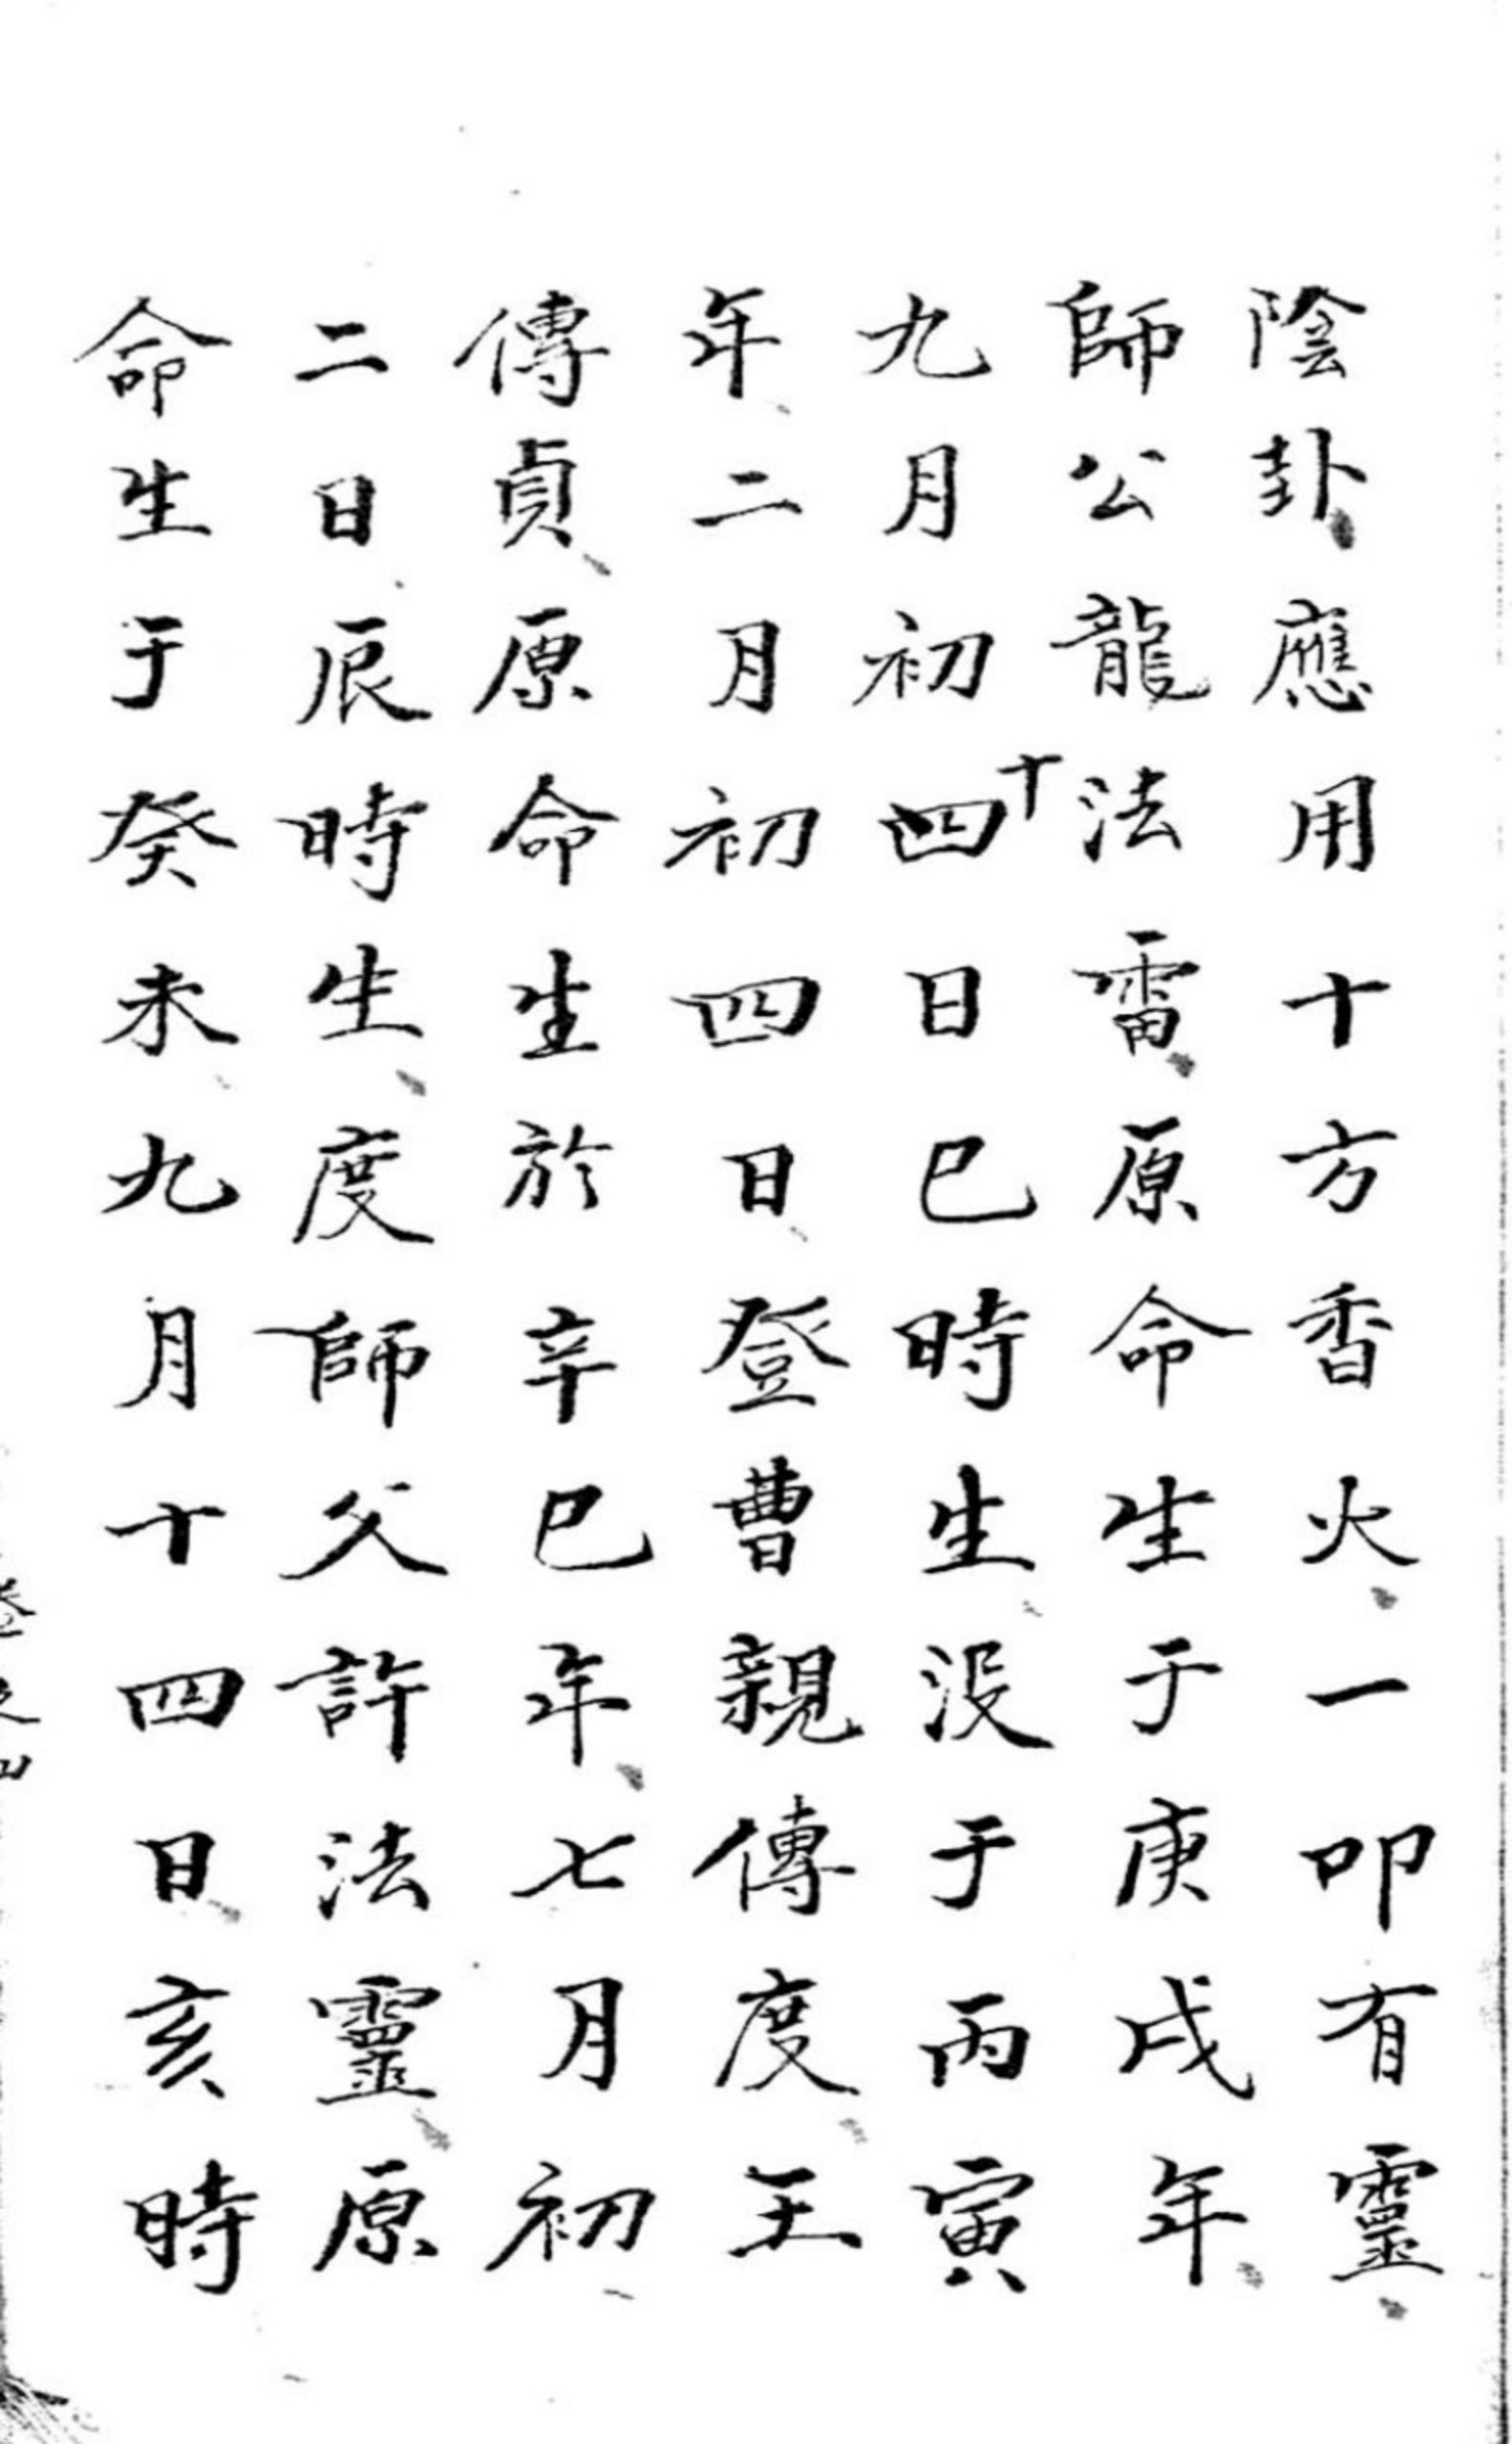 陰卦應用十方香火一叩有靈
師公龍法雷原命生于庚戌年
九月初十四日巳時生没于丙寅
年二月初四日登曹親傳度王
傳貞原命生於辛巳年七月初
二日辰時生度師父許法靈原
命生于癸未九月十四日亥時